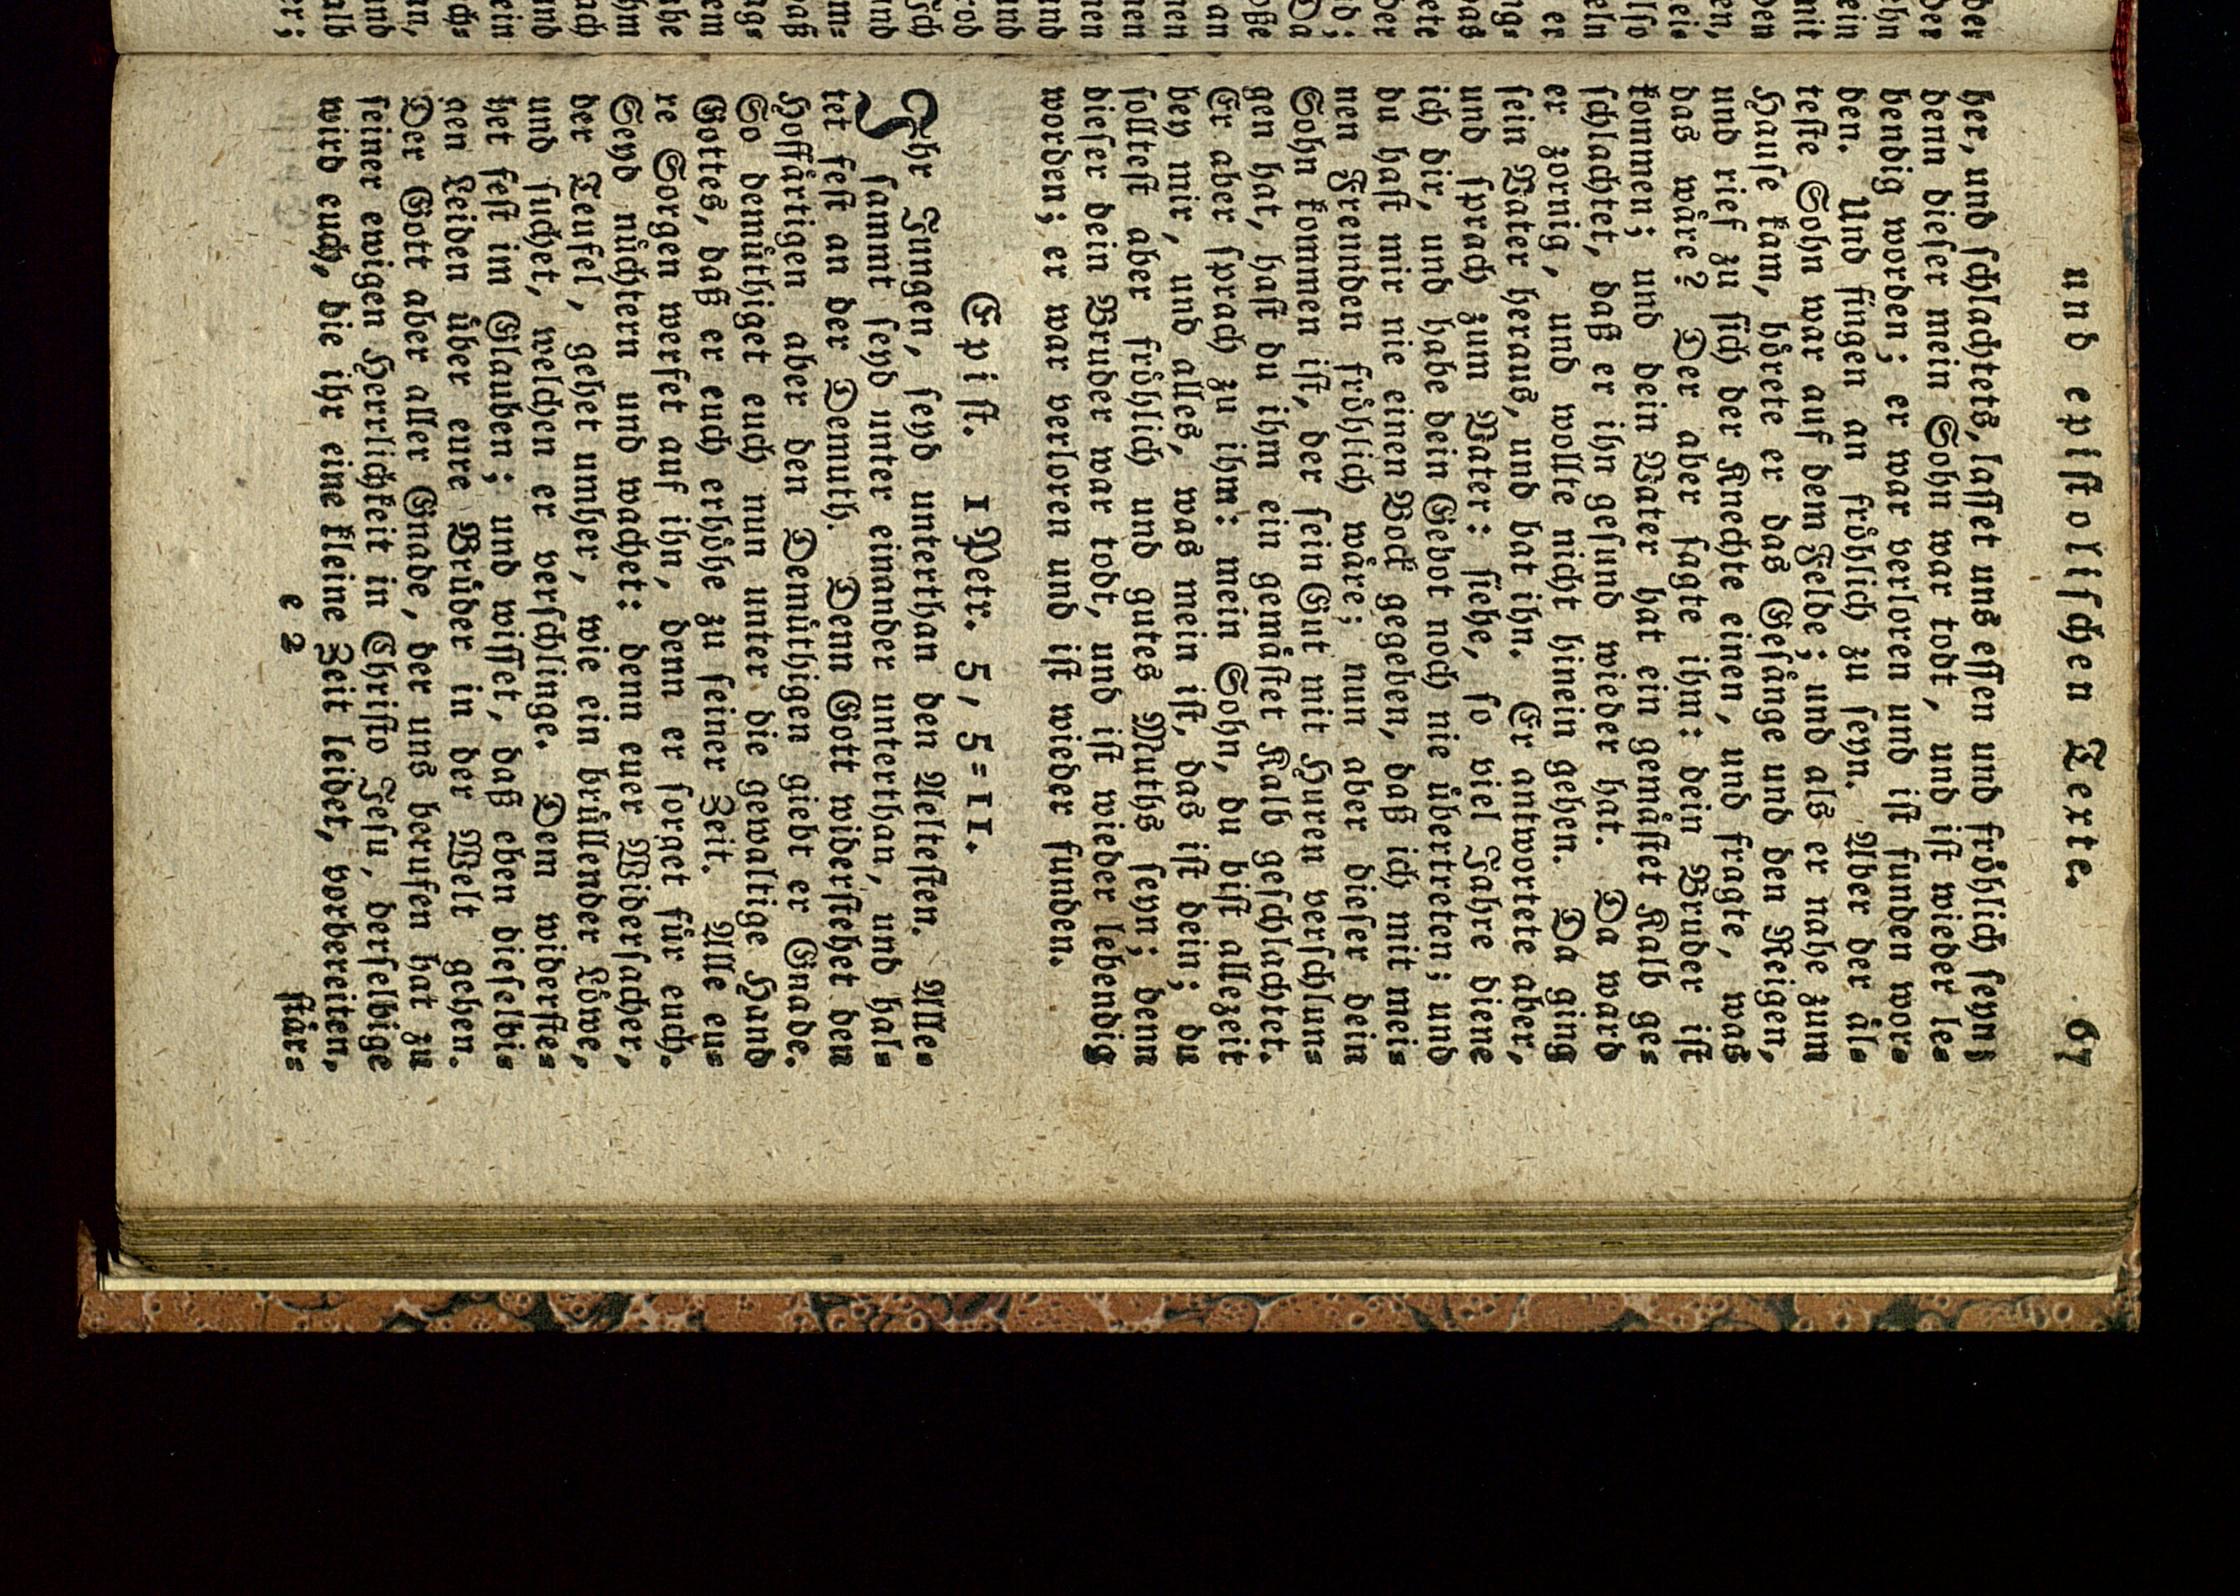 und epistolischen Texte. 67
her, und schlachtets, lasset uns essen und fröhlich seyn;
denn dieser mein Sohn war todt, und ist wieder le-
bendig worden; er war verloren und ist funden wor-
den. Und fingen an fröhlich zu seyn. Aber der äl-
teste Sohn war auf dem Felde; und als er nahe zum
Hause kam, hörete er das Gesänge und den Reigen,
und rief zu sich der Knechte einen, und fragte, was
das wäre? Der aber sagte ihm: dein Bruder ist
kommen; und dein Vater hat ein gemästet Kalb ge-
schlachtet, daß er ihn gesund wieder hat. Da ward
er zornig, und wollte nicht hinein gehen. Da ging
sein Vater heraus, und bat ihn. Er antwortete aber,
und sprach zum Vater: siehe, so viel Jahre diene
ich dir, und habe dein Gebot noch nie übertreten; und
du hast mir nie einen Bock gegeben, daß ich mit mei-
nen Freunden fröhlich wäre; nun aber dieser dein
Sohn kommen ist, der sein Gut mit Huren verschlun-
gen hat, hast du ihm ein gemästet Kalb geschlachtet.
Er aber sprach zu ihm: mein Sohn, du bist allezeit
bey mir, und alles, was mein ist, das ist dein; du
solltest aber fröhlich und gutes Muths seyn; denn
dieser dein Bruder war todt, und ist wieder lebendig
worden; er war verloren und ist wieder funden.
Epist. 1 Petr. 5, 5-11.
Ihr Jungen, seyd unterthan den Aeltesten. Alle-
sammt seyd unter einander unterthan, und hal-
tet fest an der Demuth. Denn Gott widerstehet den
Hoffärtigen aber den Demüthigen giebt er Gnade.
So demüthiget euch nun unter die gewaltige Hand
Gottes, daß er euch erhöhe zu seiner Zeit. Alle eu-
re Sorgen werfet auf ihn, denn er sorget für euch.
Seyd nüchtern und wachet: denn euer Widersacher,
der Teufel, gehet umher, wie ein brüllender Löwe,
und suchet, welchen er verschlinge. Dem widerste-
het fest im Glauben; und wisset, daß eben dieselbi-
gen Leiden über eure Brüder in der Welt gehen.
Der Gott aber aller Gnade, der uns berufen hat zu
seiner ewigen Herrlichkeit in Christo Jesu, derselbige
wird euch, die ihr eine kleine Zeit leidet, vorbereiten,
e 2 stär-